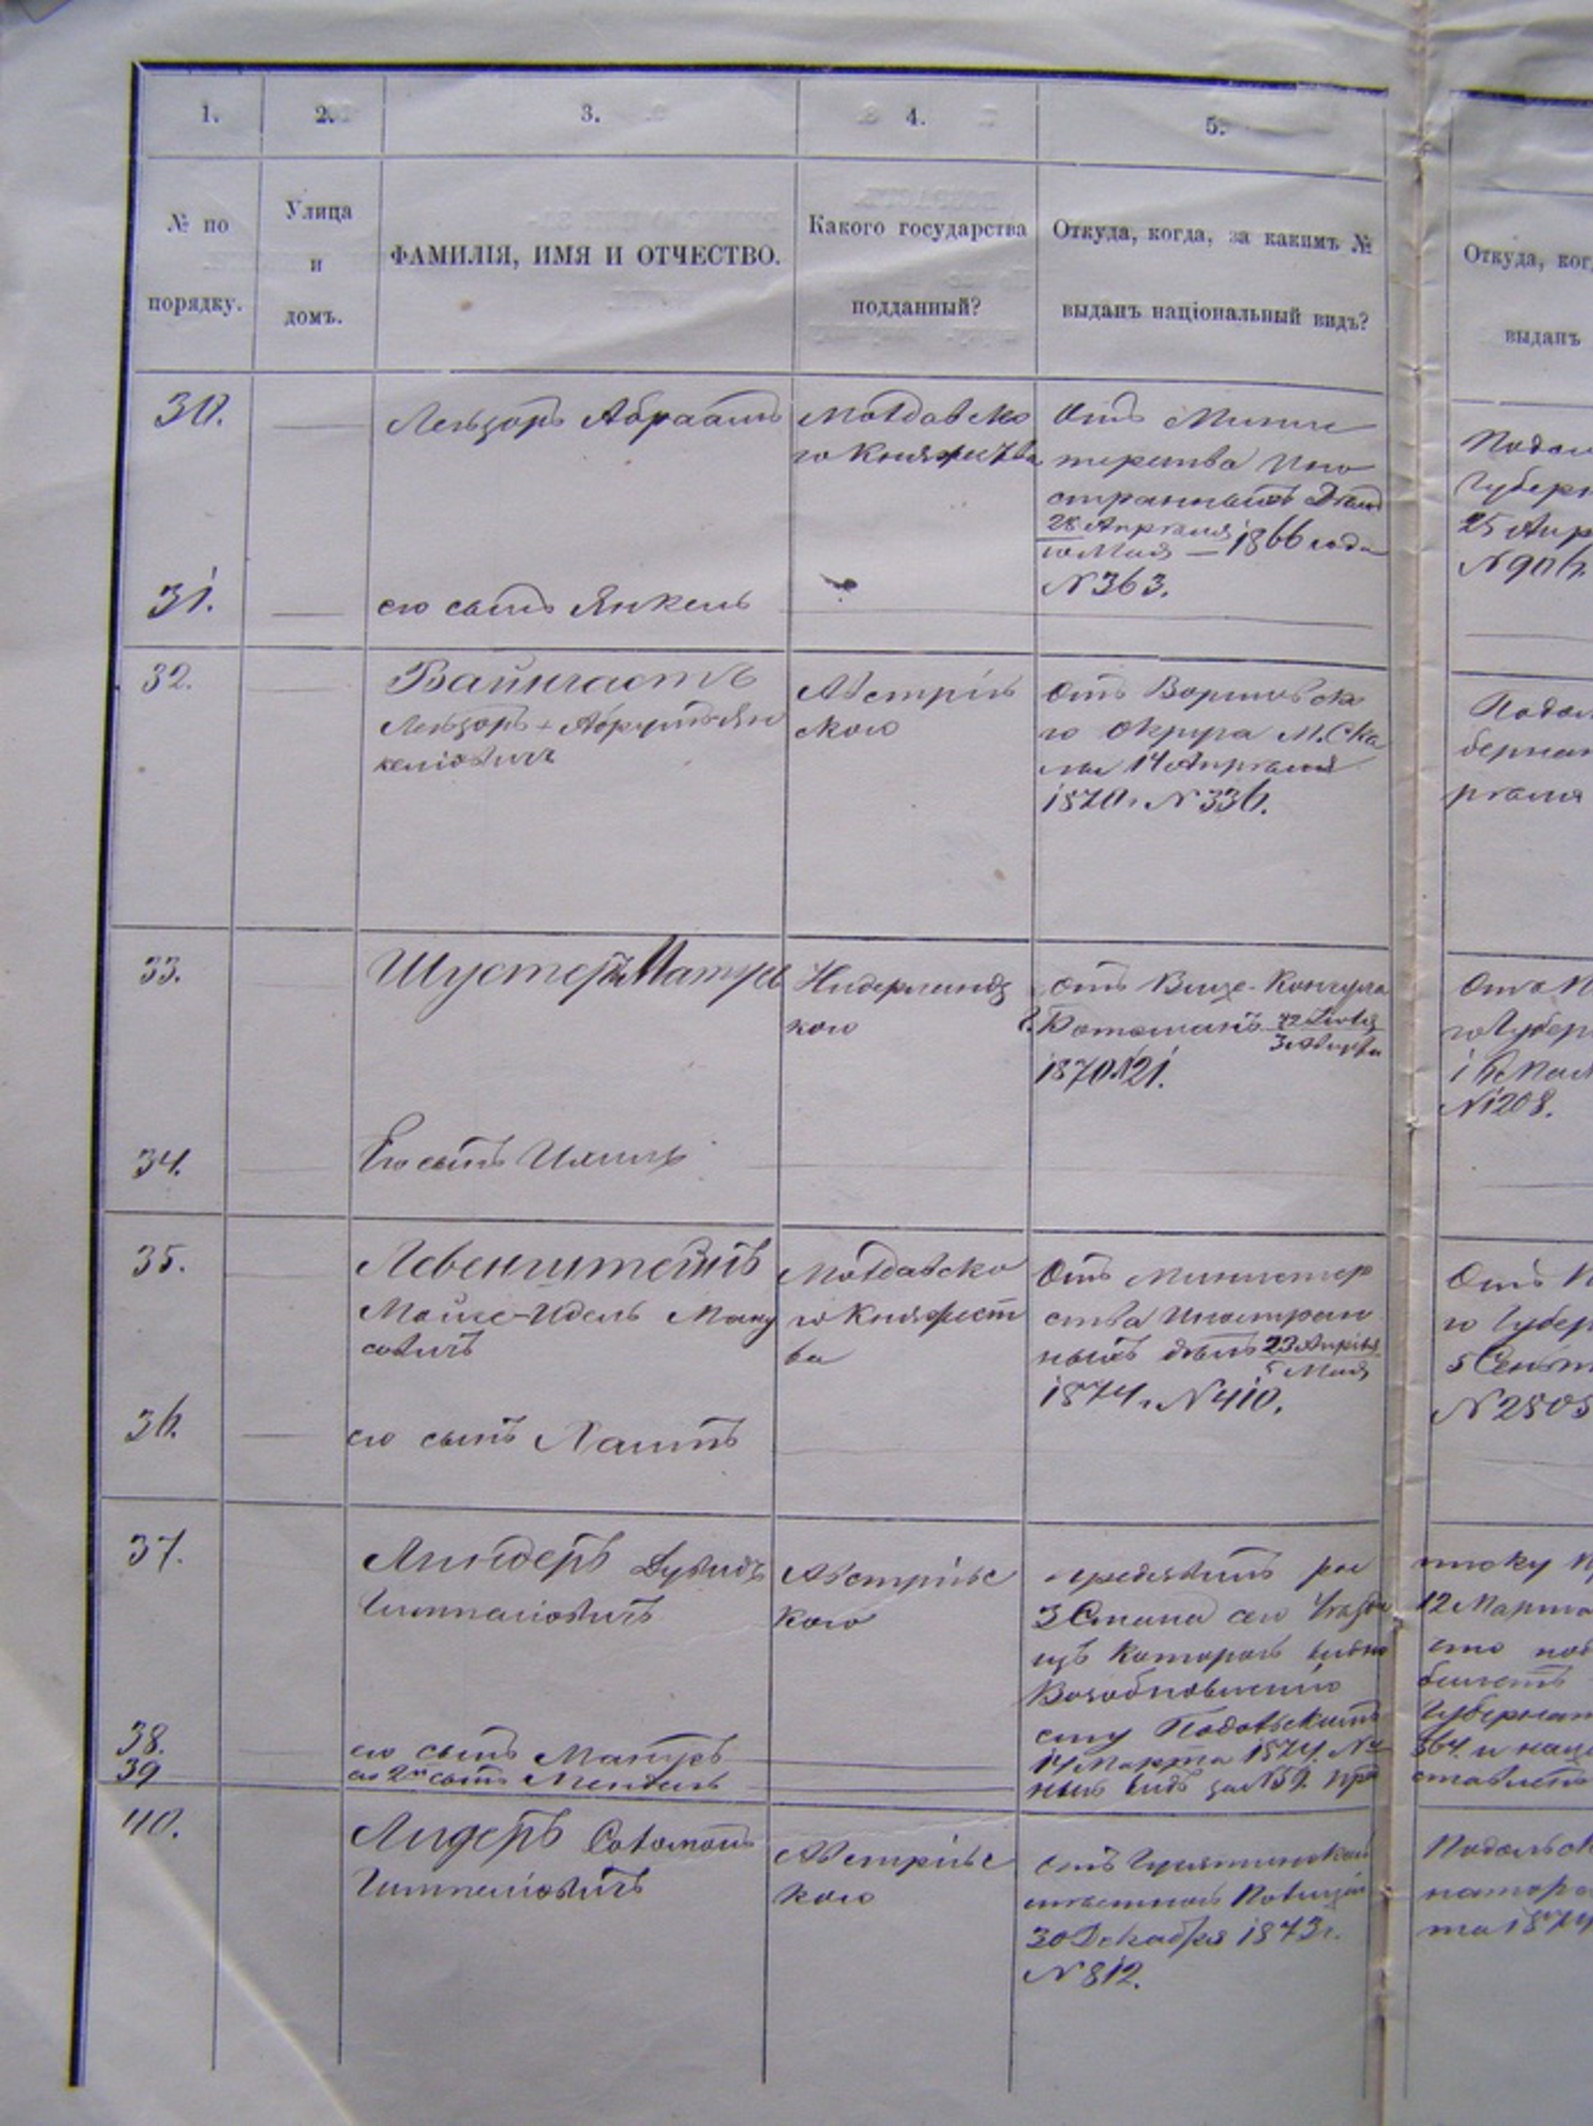 1. 2. 3. 4. 5.
№ по
порядку.
Улица
и
домъ.
ФАМИЛІЯ, ИМЯ И ОТЧЕСТВО.
Какого государства
подданный?
Откуда, когда, за какимъ №
выданъ національный видъ?
Откуда, ког
выданъ
30.
Лейзоръ Абраамъ
Молдавско
го Княжества
Отъ Минис
терства Ино
странныхъ Дѣлъ
28 Апрѣля
10 Мая 1866 года
N 363.
Подол
Губерн
25 Апр
N 906.
31.
его сынъ Янкель
32.
Вайнгастъ
Лейзоръ Абрумъ Ян
келіовичъ
Австрій
ского
Отъ Борщовска
го округа М. Ска
лы 14 Апрѣля
1870 г. N 336.
Подол
бернат
рѣля
33.
Шустеръ Матусъ
Нидерланд
ского
отъ Вице-Консула
Ботошанъ 22 Іюля
3 Августа
1870 N 21.
Отъ П
го Губер
N 1208.
34.
Его сынъ Ихиль
35.
Левенштейнъ
Мойше-Идель Ману
совичъ
Молдавско
го Княжест
ва
Отъ Министер
ства Иностран
ныхъ дѣлъ 23 Апрѣля
5 Мая
1874 г. N 410.
Отъ П
го Губер
5 Сент
N 2505
36.
его сынъ Хаимъ
37.
Линдеръ Дувидъ
Гимпеліовичъ
Австрійс
кого
предъявилъ рос
3 Стана
изъ которой видно
Возобновленію
ему Подольскимъ
14 Марта 1874. N
ный видъ за N 59. пре
писку П
12 Марта
ему под
билетъ
Губернат
564. и наці
ставленъ
38.
его сынъ Матусъ
39
его 2й сынъ Мендель
40.
Лидеръ Соломонъ
Гимпеліовичъ
Австрійс
кого
отъ Гусятинской
Полиціи
30 Декабря 1873 г.
N 812.
Подольск
натора
та 1874